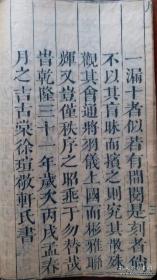 一漏十者似若有閒閱是刻者倘
不以其盲昧而擯之則究其散殊
觀其會通將羽儀上國而彬雅聯
輝又豈僅秩序之昭垂于勿替哉
峕乾隆三十一年歲次丙戌孟春
月之吉古棠徐瑄敬軒氏書